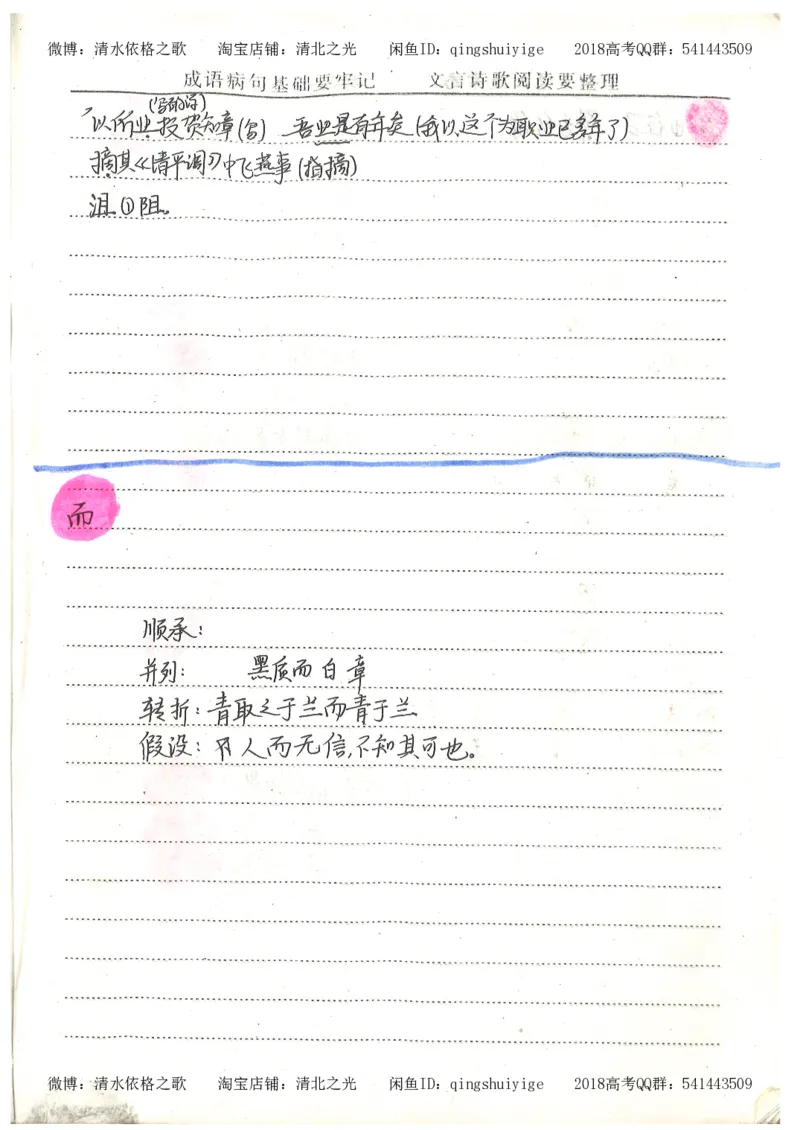 微博：清水依格之歌 淘宝店铺：清北之光 闲鱼ID：qingshuiyige 2018高考QQ群：541443509
成语病句基础要牢记 文言诗歌阅读要整理
(写的诗)
以所业投贺知章(名) 吾业是有年矣(我以这个为职业已多年了)
摘其《清平调》中飞燕事(指摘)
沮①阻。
而
顺承：
并列： 黑质而白章
转折：青取之于兰而青于兰
假设：人而无信,不知其可也。
微博：清水依格之歌 淘宝店铺：清北之光 闲鱼ID：qingshuiyige 2018高考QQ群：541443509